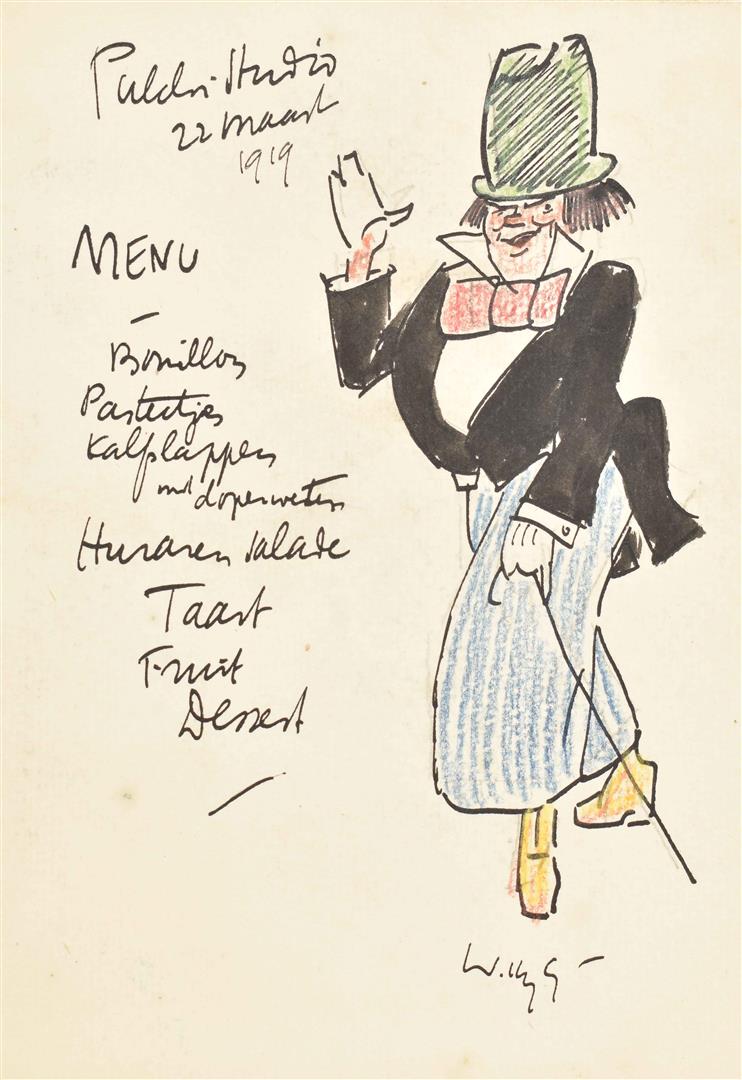 Pulchri Studio
22 maart
1919
MENU
Bouillon
Pasteitjes
Kalfslappen
met doperwten
Huzaren salade
Taart
Fruit
Dessert